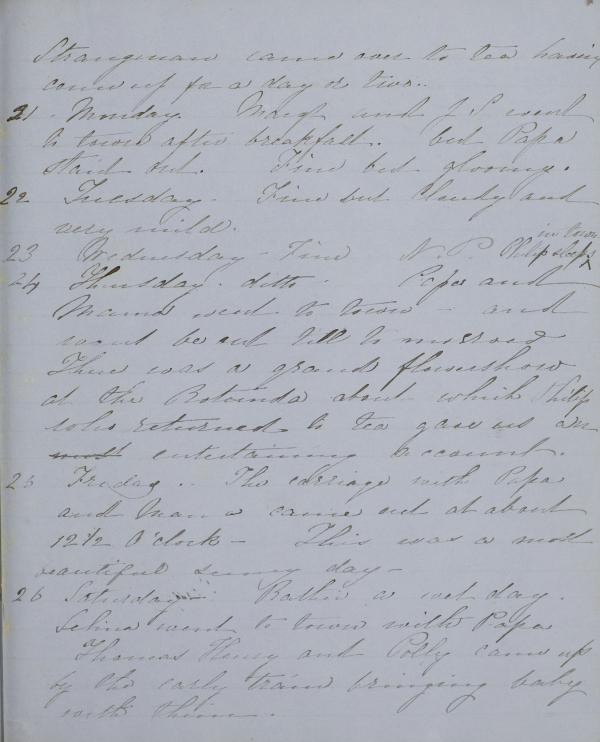 Strangman came over to tea having
come up for a day or two..
21. Monday. Margt and J. S. went
to town after breakfast. but Papa
staid out. Fine but gloomy.
22 Tuesday. Fine but cloudy and
very mild.
23 Wednesday - Fine N. P. Philip sleeps ^ in town
24 Thursday. ditto. Papa and
Mama went to town - and
wont be out till to morrow
There was a grand flowershow
at the Rotunda about which Philip
who returned to tea gave us an
most entertaining account.
25 Friday.. The carriage with Papa
and Mama came out at about
12 1/2 O'clock - This was a most
beautiful sunny day -
26 Saturday - Rather a wet day.
Selina went to town with Papa
Thomas Henry and Polly came up
by the early train bringing baby
with them.